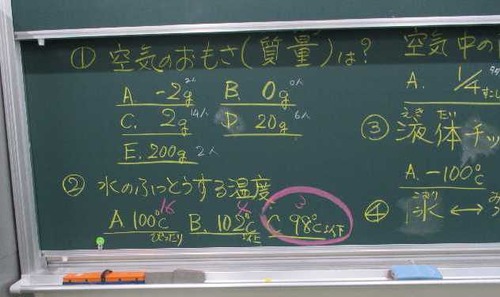 ① 空気のおもさ(質量)は?
A. -2g 2人 B. 0g 0人
C. 2g 14人 D 20g 6人
E. 200g 2人
② 水のふっとうする温度
A 100℃ ぴったり 16 B. 102℃ 以上 4 C 98℃ 以下 3
空気中の
A. 1/4 すこし
③ 液体チッ
えき たい
A. -100℃
④ 氷 ↔
こおり